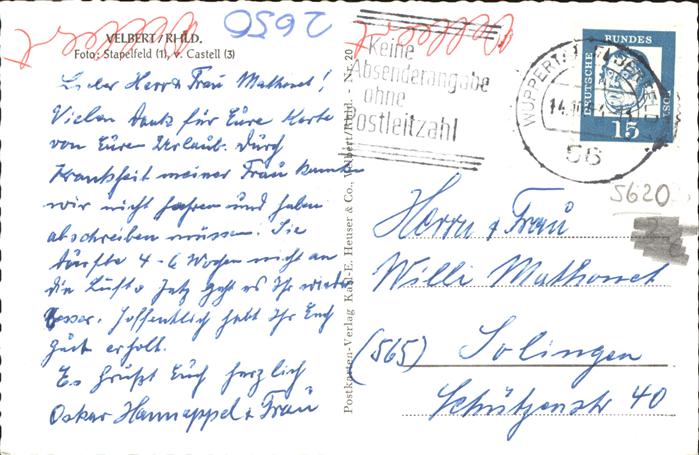 VELBERT/RHLD.
Foto: Stapelfeld (1), v. Castell (3)
2650
Lieber Herr & Frau Mathonet!
Vielen Dank für Eure Karte
von Euren Urlaub. Durch
Krankheit meiner Frau konnten
wir nicht fahren und haben
abschreiben müssen. Sie
durfte 4-6 Wochen nicht an
die Luft. Jetzt geht es Ihr wieder
besser. Hoffentlich habt Ihr Euch
gut erholt.
Es grüßt Euch herzlich
Oskar Hannappel & Frau
Postkarten-Verlag Karl-E. Heuser & Co., Velbert/Rhld. - Nr. 20
Keine
Absenderangabe
ohne
Postleitzahl
WUPPERTAL-ELBERFELD
56
DEUTSCHE BUNDES
15
5620
Herrn & Frau
Willi Mathonet
(565) Solingen
Schützenstr 40